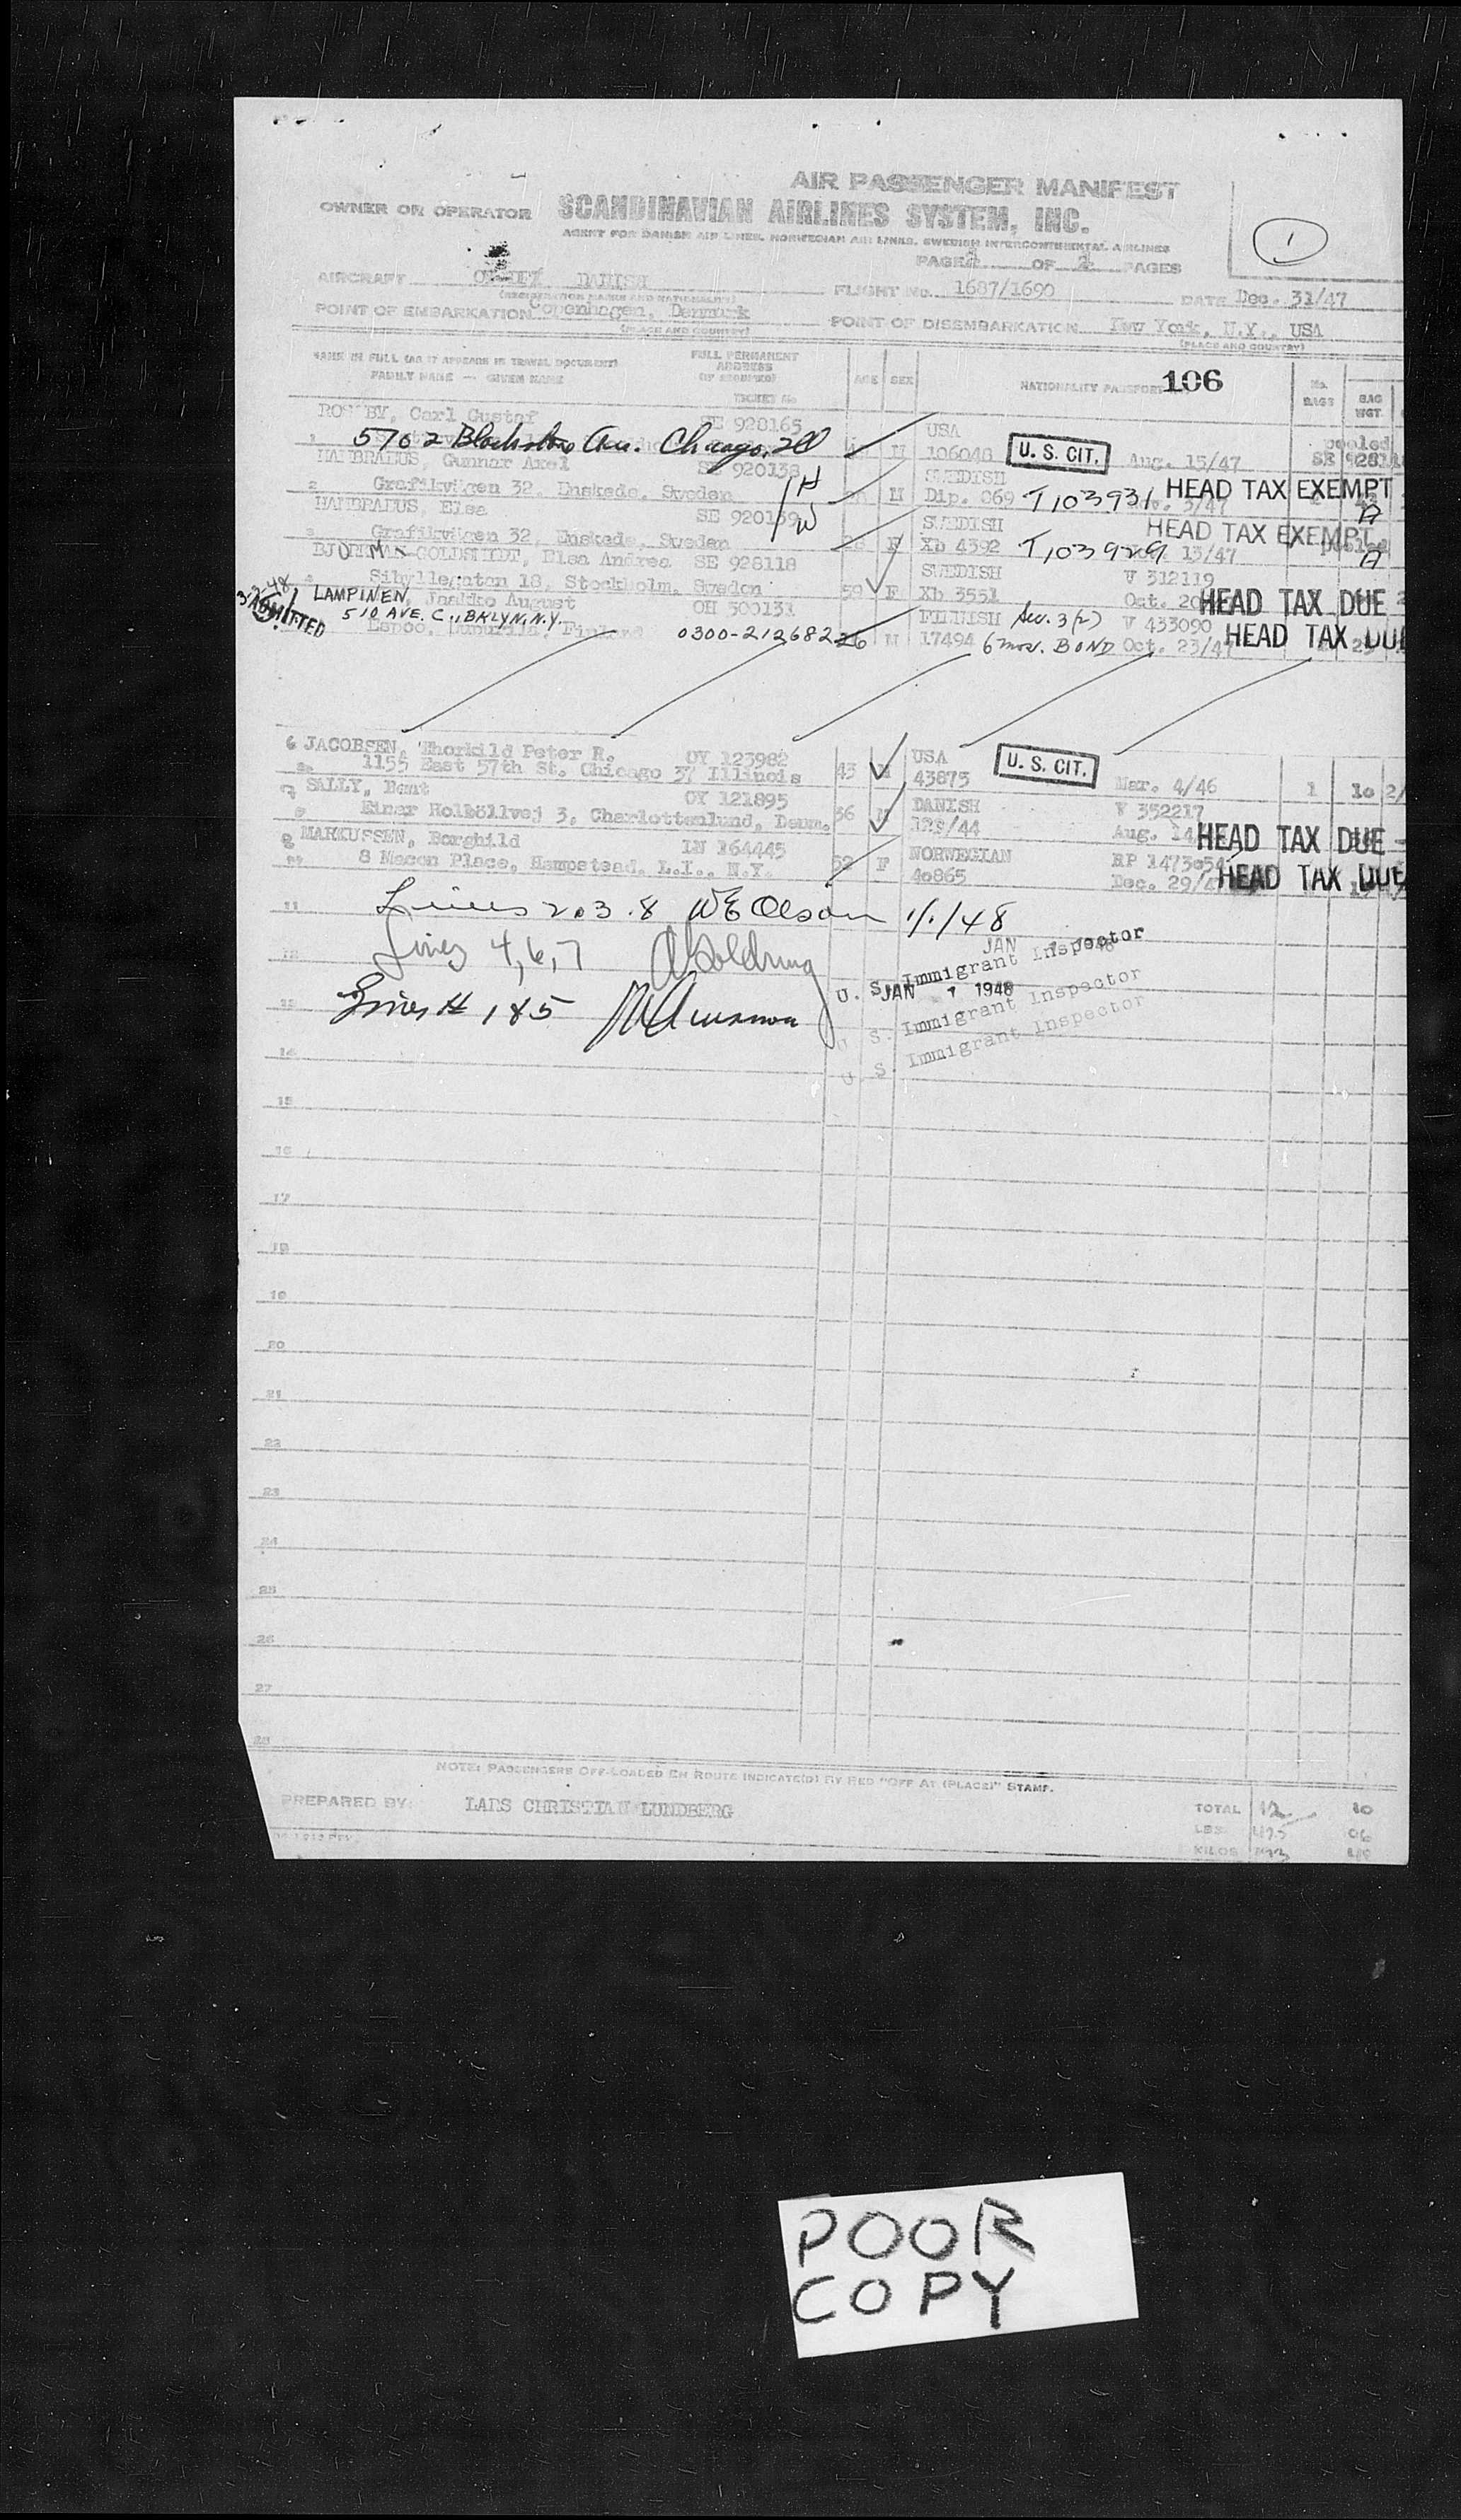 AIR PASSENGER MANIFEST
OWNER OR OPERATOR SCANDINAVIAN AIRLINES SYSTEM, INC.
AGENT FOR DANISH AIR LINES, NORWEGIAN AIR LINES, SWEDISH INTERCONTINENTAL AIRLINES
1
PAGE 2 OF 2 PAGES
AIRCRAFT DANISH FLIGHT No. 1687/1690 DATE Dec. 31/47
(REGISTRATION MARKS AND NATIONALITY)
POINT OF EMBARKATION Copenhagen, Denmark POINT OF DISEMBARKATION New York, N.Y., USA
(PLACE AND COUNTRY) (PLACE AND COUNTRY)
NAME IN FULL (AS IT APPEARS IN TRAVEL DOCUMENT) FULL PERMANENT ADDRESS (IF REQUIRED) AGE SEX NATIONALITY PASSPORT 106 No. BAGS BAG WGT.
FAMILY NAME — GIVEN NAME TICKET No
Carl Gustaf SE 928165 USA pooled
1 5702 Blackstone Ave. Chicago, Ill M 106048 U. S. CIT. Aug. 15/47 SE
HAMBRAEUS, Gunnar Axel SE 920138 SWEDISH
2 Grafikvägen 32, Enskede, Sweden H M Dip. 069 T103931 HEAD TAX EXEMPT
HAMBRAEUS, Elsa SE 920139 W SWEDISH HEAD TAX EXEMPT
3 Grafikvägen 32, Enskede, Sweden 28 F Xb 4392 T,103929 13/47 pooled
BJORKMAN-GOLDSMIDT, Elsa Andrea SE 928118 SWEDISH V 312119
Sibyllegatan 18, Stockholm, Sweden 59 F Xb 3551 Oct. 20 HEAD TAX DUE
3-2-48 ADMITTED LAMPINEN, Jaakko August OH 300131 FINNISH Sec. 3(2) V 433090
510 AVE. C., BKLYN, N.Y.
Espoo, Finland 0300-212682 26 M 17494 6 mos. BOND Oct. 23/47 HEAD TAX DUE
6 JACOBSEN, Thorkild Peter R. OY 123982 USA
1155 East 57th St. Chicago 37 Illinois 43 M 43875 U. S. CIT. Mar. 4/46 1 10
7 SALLY, Bent OY 121895 DANISH V 352217
Einar Holböllvej 3, Charlottenlund, Denm. 36 M 129/44 Aug. 14 HEAD TAX DUE
8 MARKUSSEN, Borghild LN 164445 NORWEGIAN RP 1473054
8 Macon Place, Hempstead, L.I., N.Y. 52 F 40865 Dec. 29/47 HEAD TAX DUE
11 Lines 2.3.8 W E Olson 1/1/48
12 Lines 4, 6, 7 JAN
U. S. Immigrant Inspector
JAN 1 1948
13 Lines # 1 & 5
U. S. Immigrant Inspector
U. S. Immigrant Inspector
14
15
16
17
18
19
20
21
22
23
24
25
26
27
28
NOTE: PASSENGERS OFF-LOADED EN ROUTE INDICATE(D) BY RED "OFF AT (PLACE)" STAMP.
PREPARED BY: LARS CHRISTIAN LUNDBERG
TOTAL 12
LBS
KILOS
POOR
COPY